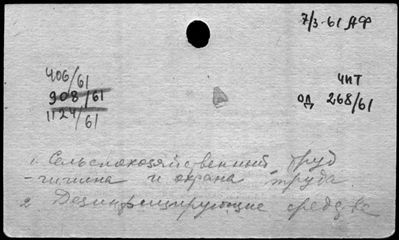 7/3-61 АФ
406/61
908/61
1124/61
чит
од 268/61
1. Сельскохозяйственный труд
- гигиена и охрана труда
2. Дезинфицирующие средства